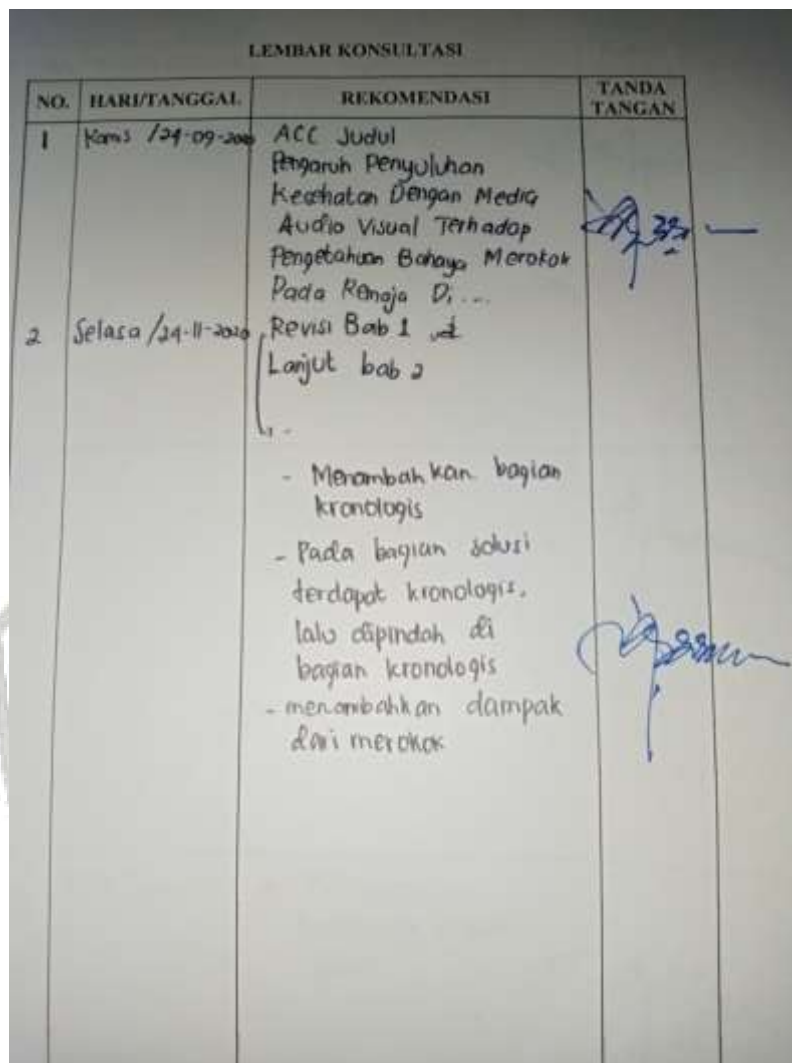 LEMBAR KONSULTASI
NO. HARI/TANGGAL REKOMENDASI TANDA TANGAN
1 Kamis /24-09-2020 ACC Judul
Pengaruh Penyuluhan
Kesehatan Dengan Media
Audio Visual Terhadap
Pengetahuan Bahaya Merokok
Pada Remaja Di ...
2 Selasa /24-11-2020 Revisi Bab 1
Lanjut bab 2
- Menambahkan bagian
kronologis
- Pada bagian solusi
terdapat kronologis,
lalu dipindah di
bagian kronologis
- menambahkan dampak
dari merokok